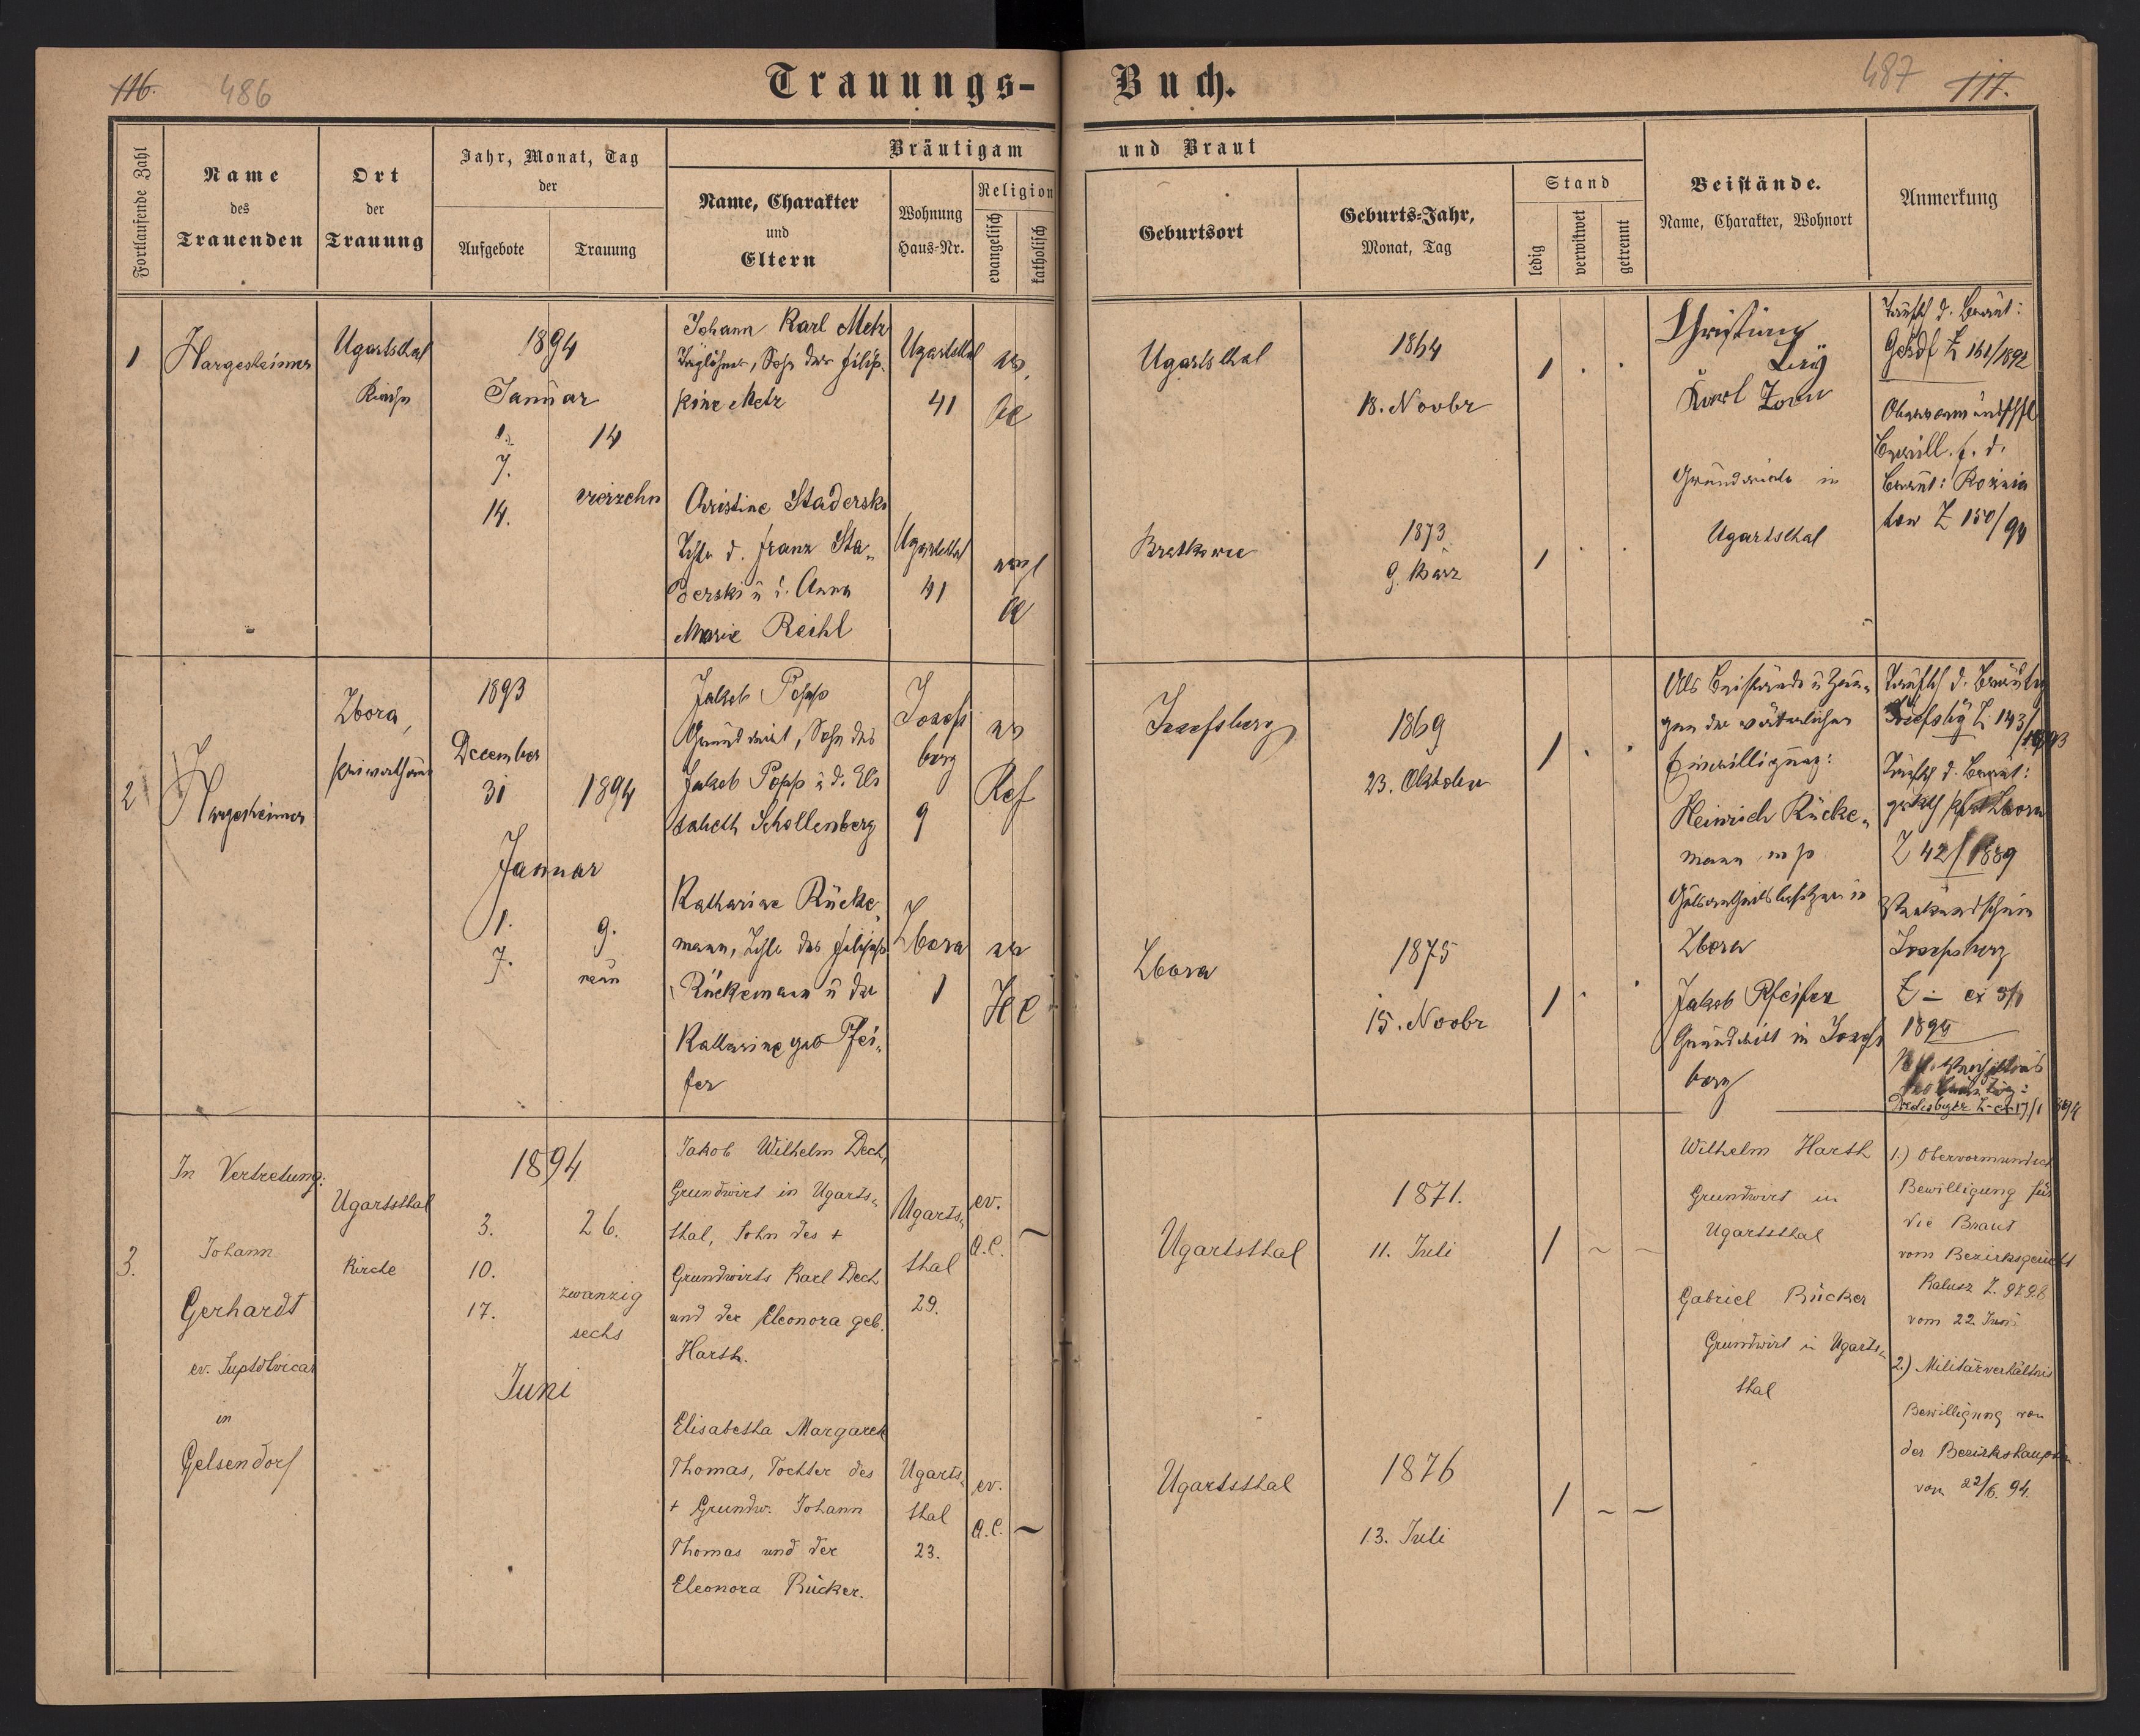 116.
486
Trauungs-
Buch.
487
117.
Fortlaufende Zahl
Name
des
Trauenden
Ort
der
Trauung
Jahr, Monat, Tag
der
Aufgebote
Trauung
Bräutigam
und Braut
Name, Charakter
und
Eltern
Wohnung
Haus-Nr.
Religion
evangelisch
katholisch
Geburtsort
Geburts-Jahr,
Monat, Tag
Stand
ledig
verwitwet
getrennt
Beistände.
Name, Charakter, Wohnort
Anmerkung
1
Hargesheimer
Ugartsthal
Kirche
1894
Januar
1.
7.
14.
14
vierzehn
Johann Karl Metz
Taglöhner, Sohn der Filip-
pine Metz
Ugartsthal
41
ev.
AC
Ugartsthal
1864
18. Novbr
1
Christine Staderski
Tochter d. Franz Sta-
derski u d. Anna
Marie Reihl
Ugartsthal
41
evgl
AC
1873
9. März
1
Christian
Karl Zorn
Grundwirte in
Ugartsthal
Taufsch d. Bräut:
Gelsdf Z 161/1892
Obervormundschftl
Bewill. f. d.
Bräut: Roznia
tow Z 150/94
2
Hargesheimer
Zbora,
Privathaus
1893
December
31
1894
Januar
1.
7.
9.
neun
Jakob Popp
Grundwirt, Sohn des
Jakob Popp u d. Eli
sabeth Schollenberg
Josefs
berg
9
ev
Ref
Josefsberg
1869
23. Oktober
1
Katharine Rücke-
mann, Tochter des Philipp
Rückemann u der
Katharine geb Pfei-
fer
Zbora
1
ev
HC
Zbora
1875
15. Novbr
1
Als Beistände u Zeu-
gen der väterlichen
Einwilligung:
Heinrich Rücke-
mann mp
Zbora
Jakob Pfeifer
Grundwirt in Josefs
berg
Taufsch d. Bräutig
Josefsbg Z. 143/1893
Taufsch d. Bräut:
Z 42/1889
Verkündschein
Josephsberg
Z – ex 8/1
1894
3.
In Vertretung:
Johann
Gerhardt
ev. Suptdtvicar
in
Gelsendorf
Ugartsthal
Kirche
1894
3.
10.
17.
26.
zwanzig
sechs
Juni
Jakob Wilhelm Dech,
Grundwirt in Ugarts-
thal, Sohn des +
Grundwirts Karl Dech
und der Eleonora geb.
Harth.
Ugarts-
thal
29.
ev.
A.C.
~
Ugartsthal
1871.
11. Juli
1
~
~
Elisabetha Margareth
Thomas, Tochter des
+ Grundw. Johann
Thomas und der
Eleonora Rücker.
Ugarts-
thal
23.
ev.
A.C.
~
Ugartsthal
1876
13. Juli
1
~
~
Wilhelm Harth
Grundwirt in
Ugartsthal
Gabriel Rücker
Grundwirt in Ugarts-
thal
1.) Obervormundsch
Bewilligung für
die Braut
vom Bezirksgericht
Kalusz Z. 9296
vom 22. Juni
2.) Militärverhältnis
Bewilligung von
der Bezirkshauptm.
vom 22/6. 94.